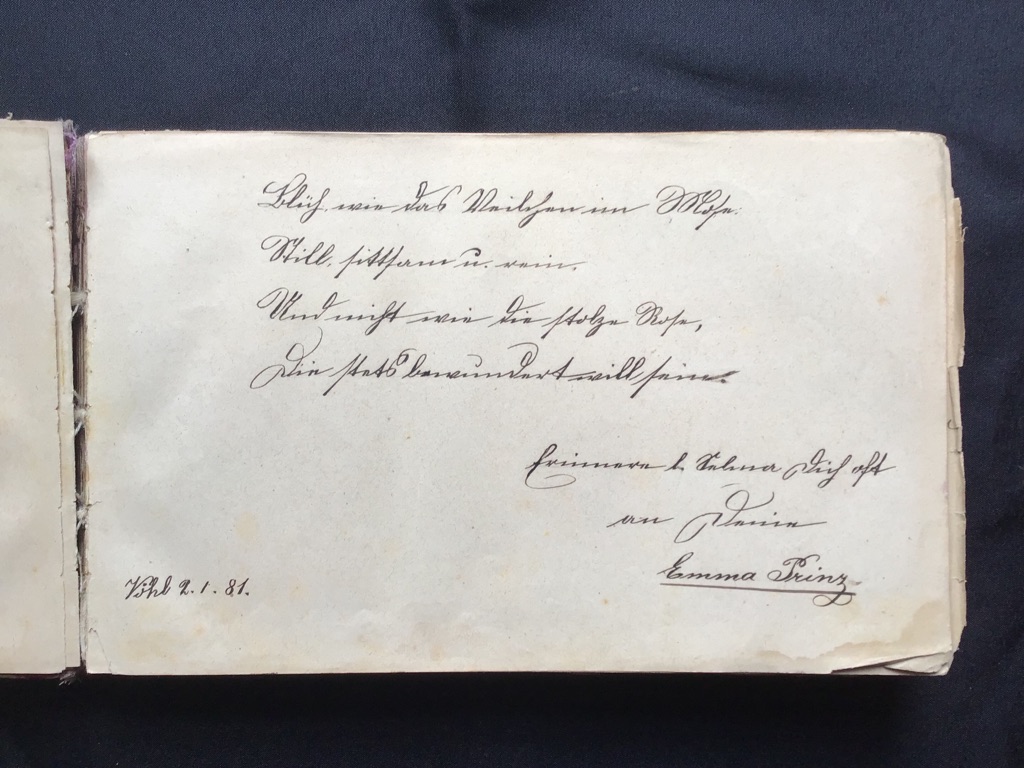 Blüh wie das Veilchen im Mose:
Still, sittsam u. rein.
Und nicht wie die stolze Rose,
Die stets bewundert will sein.
Erinnere l. Selma Dich oft
an Deine
Emma Prinz
Vöhl 2.1.81.